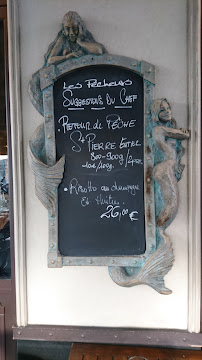 Les Pêcheurs
Suggestions Du Chef
Retour de Pêche
St PIERRE Entier
800-900g /2 pers
10€/100g
• Risotto au champagne
Et Huître
26,00 €